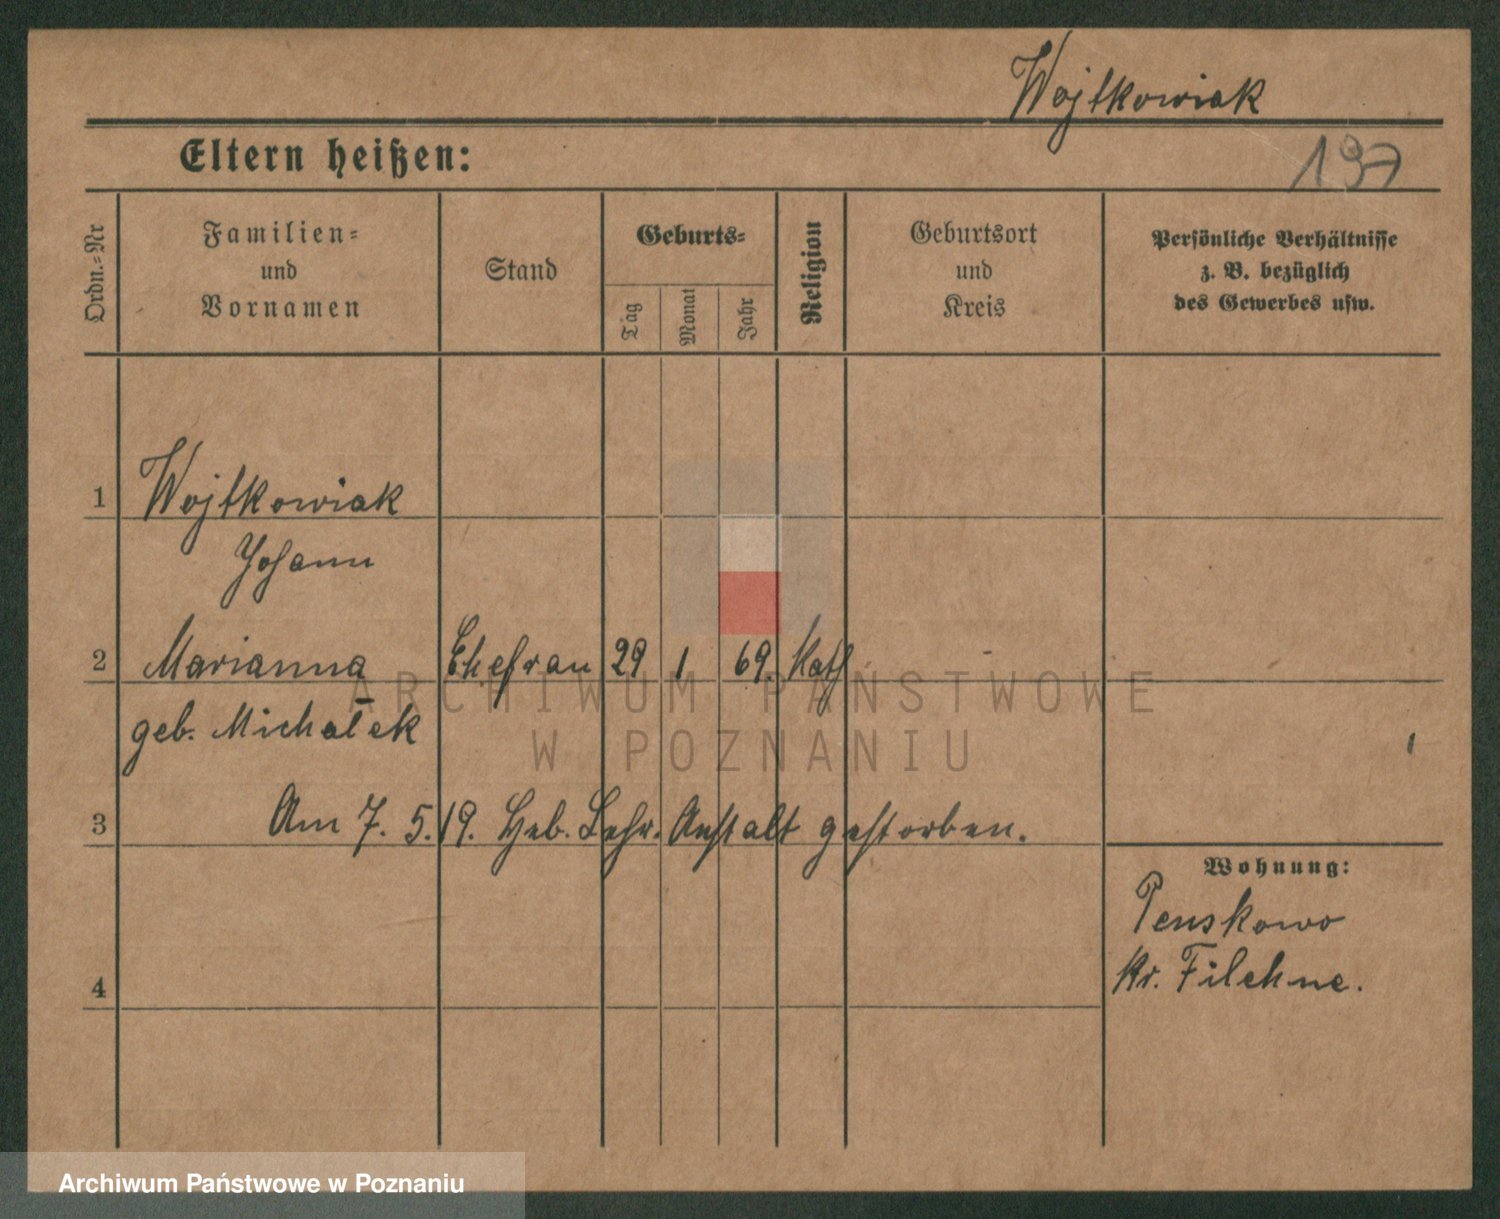 Wojtkowiak
Eltern heißen:
197
Ordn.=Nr
Familien=
und
Vornamen
Stand
Geburts=
Tag
Monat
Jahr
Religion
Geburtsort
und
Kreis
Persönliche Verhältnisse
z. B. bezüglich
des Gewerbes usw.
1 Wojtkowiak
Johann
2 Marianna Ehefrau 29 1 69. Kath -
geb. Michałek
3 Am 7. 5. 19. Heb. Lehr. Anstalt gestorben.
Wohnung:
Penskowo
Kr. Filehne.
4
ARCHIWUM PAŃSTWOWE
W POZNANIU
Archiwum Państwowe w Poznaniu